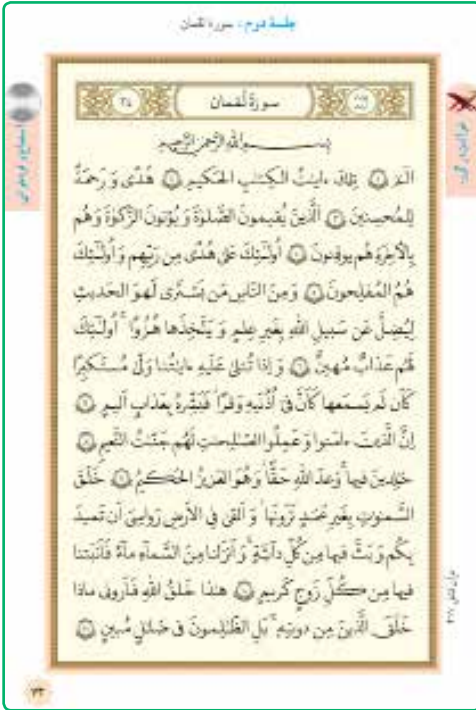 جلسهٔ دوم: سورهٔ لقمان
سورة لقمان
٣٤
بسم الله الرحمن الرحيم
الٓمٓ ١ تِلكَ ءايٰتُ الكِتٰبِ الحَكيمِ ٢ هُدًى وَ رَحمَةً
لِلمُحسِنينَ ٣ اَلَّذينَ يُقيمونَ الصَّلوٰةَ وَ يُؤتونَ الزَّكوٰةَ وَ هُم
بِالآخِرَةِ هُم يوقِنونَ ٤ اُولٰئِكَ عَلىٰ هُدًى مِن رَبِّهِم وَ اُولٰئِكَ
هُمُ المُفلِحونَ ٥ وَ مِنَ النّاسِ مَن يَشتَرى لَهوَ الحَديثِ
لِيُضِلَّ عَن سَبيلِ اللهِ بِغَيرِ عِلمٍ وَ يَتَّخِذَها هُزُوًا اُولٰئِكَ
لَهُم عَذابٌ مُهينٌ ٦ وَ اِذا تُتلىٰ عَلَيهِ ءايٰتُنا وَلّىٰ مُستَكبِرًا
كَاَن لَم يَسمَعها كَاَنَّ فى اُذُنَيهِ وَقرًا فَبَشِّرهُ بِعَذابٍ اَليمٍ ٧
اِنَّ الَّذينَ ءامَنوا وَ عَمِلُوا الصّٰلِحٰتِ لَهُم جَنّٰتُ النَّعيمِ ٨
خٰلِدينَ فيها وَعدَ اللهِ حَقًّا وَ هُوَ العَزيزُ الحَكيمُ ٩ خَلَقَ
السَّمٰوٰتِ بِغَيرِ عَمَدٍ تَرَونَها وَ اَلقىٰ فِى الاَرضِ رَوٰسِىَ اَن تَميدَ
بِكُم وَ بَثَّ فيها مِن كُلِّ دابَّةٍ وَ اَنزَلنا مِنَ السَّماءِ ماءً فَاَنبَتنا
فيها مِن كُلِّ زَوجٍ كَريمٍ ١٠ هٰذا خَلقُ اللهِ فَاَرونى ماذا
خَلَقَ الَّذينَ مِن دونِهِ بَلِ الظّٰلِمونَ فى ضَلٰلٍ مُبينٍ ١١
٧٣